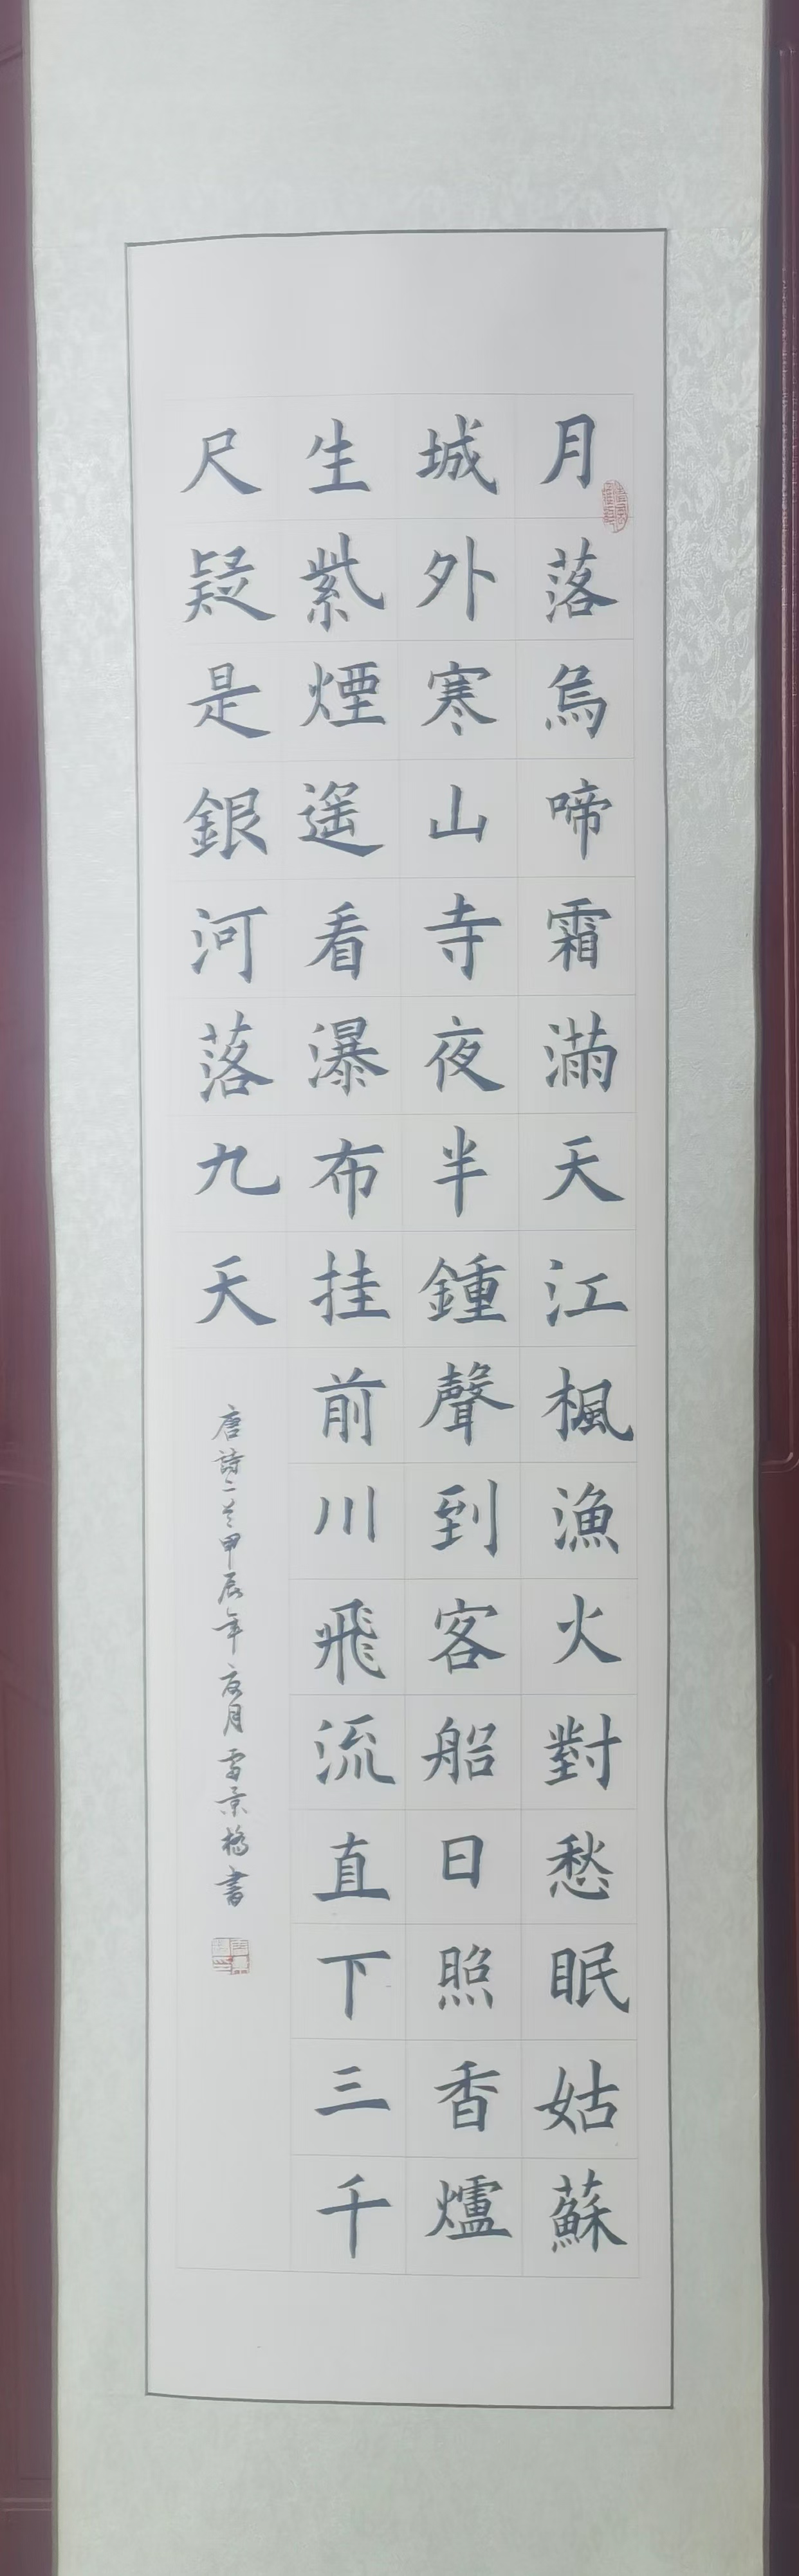 月落烏啼霜滿天江楓漁火對愁眠姑蘇
城外寒山寺夜半鍾聲到客船日照香爐
生紫煙遙看瀑布挂前川飛流直下三千
尺疑是銀河落九天
唐詩二首甲辰年夏月雷景橋書